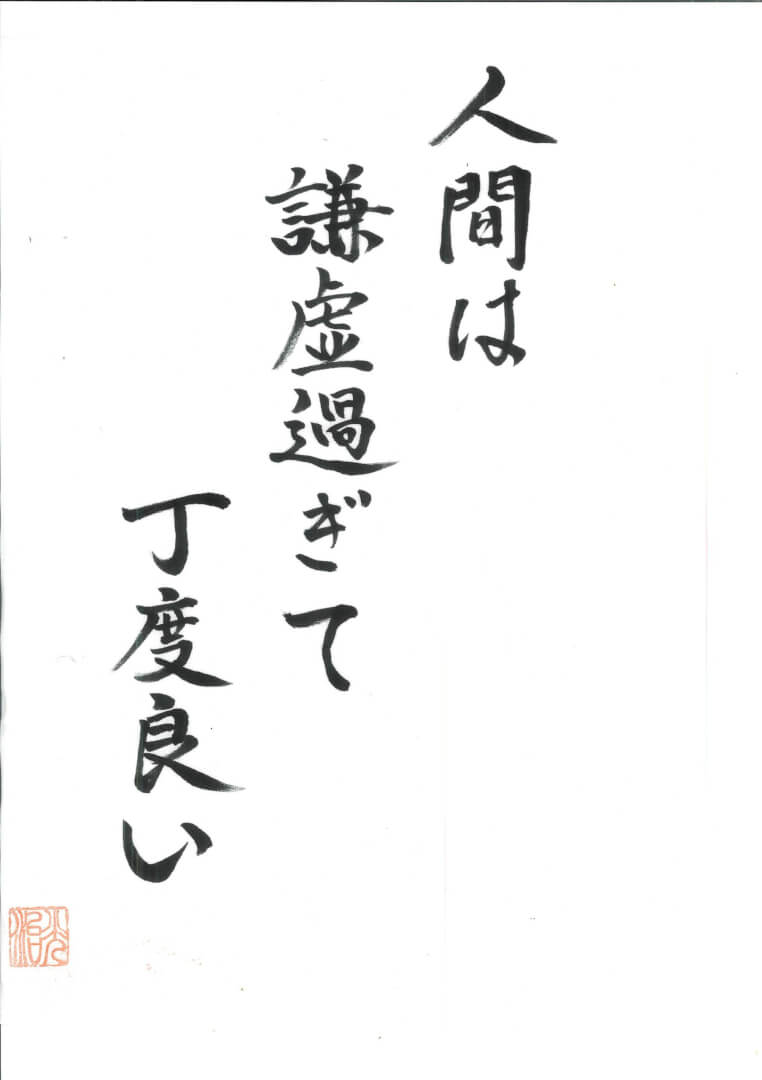 人間は
謙虚過ぎて
丁度良い